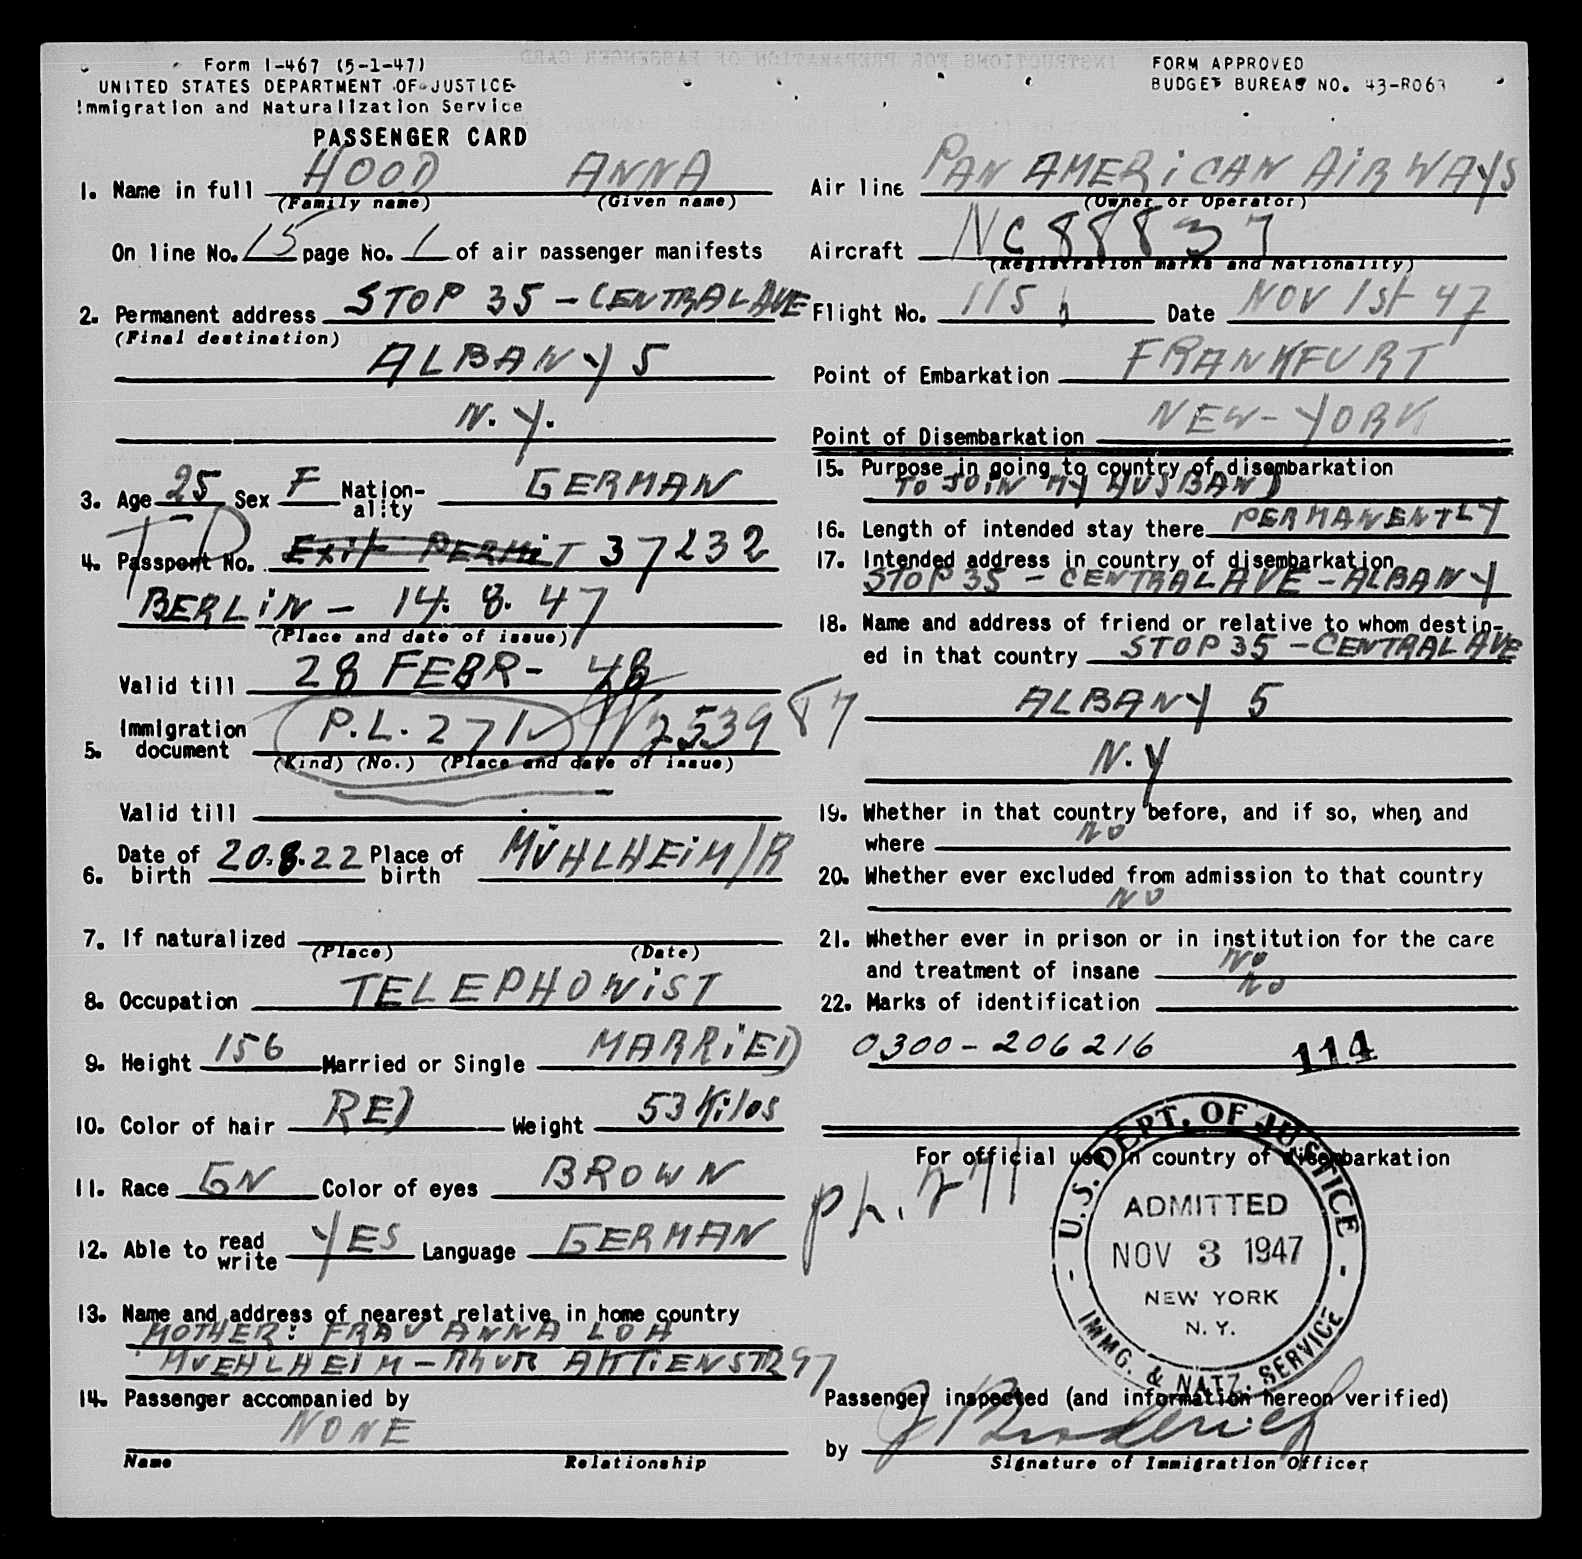 Form I-467 (5-1-47)
UNITED STATES DEPARTMENT OF JUSTICE
Immigration and Naturalization Service
PASSENGER CARD
1. Name in full HOOD ANNA
(Family name) (Given name)
On line No. 15 page No. 1 of air passenger manifests
2. Permanent address STOP 35 - CENTRAL AVE
(Final destination)
ALBANY 5
N.Y.
3. Age 25 Sex F Nation-
ality GERMAN
T.D.
4. Passport No. Exit PERMIT 37232
BERLIN - 14. 8. 47
(Place and date of issue)
Valid till 28 FEBR - 48
5. Immigration
document P.L. 271 253987
(Kind) (No.) (Place and date of issue)
Valid till
6. Date of
birth 20.8.22 Place of
birth MÜHLHEiM/R
7. If naturalized
(Place) (Date)
8. Occupation TELEPHONiST
9. Height 156 Married or Single MARRiED
10. Color of hair RED Weight 53 Kilos
11. Race GN Color of eyes BROWN
12. Able to read
write YES Language GERMAN
13. Name and address of nearest relative in home country
MOTHER: FRAU ANNA LOH
MUEHLHEIM - RhUR AKTiENSTR 97
14. Passenger accompanied by
NONE
Name Relationship
FORM APPROVED
BUDGET BUREAU NO. 43-R063
Air line PAN AMERiCAN AiRWAYS
(Owner or Operator)
Aircraft NC 88837
(Registration marks and Nationality)
Flight No. 115 Date NOV 1st 47
Point of Embarkation FRANKFURT
Point of Disembarkation NEW-YORK
15. Purpose in going to country of disembarkation
TO JOIN MY HUSBAND
16. Length of intended stay there PERMANENTLY
17. Intended address in country of disembarkation
STOP 35 - CENTRAL AVE - ALBANY
18. Name and address of friend or relative to whom destin-
ed in that country STOP 35 - CENTRAL AVE
ALBANY 5
N.Y
19. Whether in that country before, and if so, when, and
where NO
20. Whether ever excluded from admission to that country
NO
21. Whether ever in prison or in institution for the care
and treatment of insane NO
22. Marks of identification NO
0300-206216 114
For official use in country of disembarkation
P.L. 271
U.S. DEPT. OF JUSTICE
ADMITTED
NOV 3 1947
NEW YORK
N. Y.
IMMG. & NATZ. SERVICE
Passenger inspected (and information hereon verified)
by
Signature of Immigration Officer